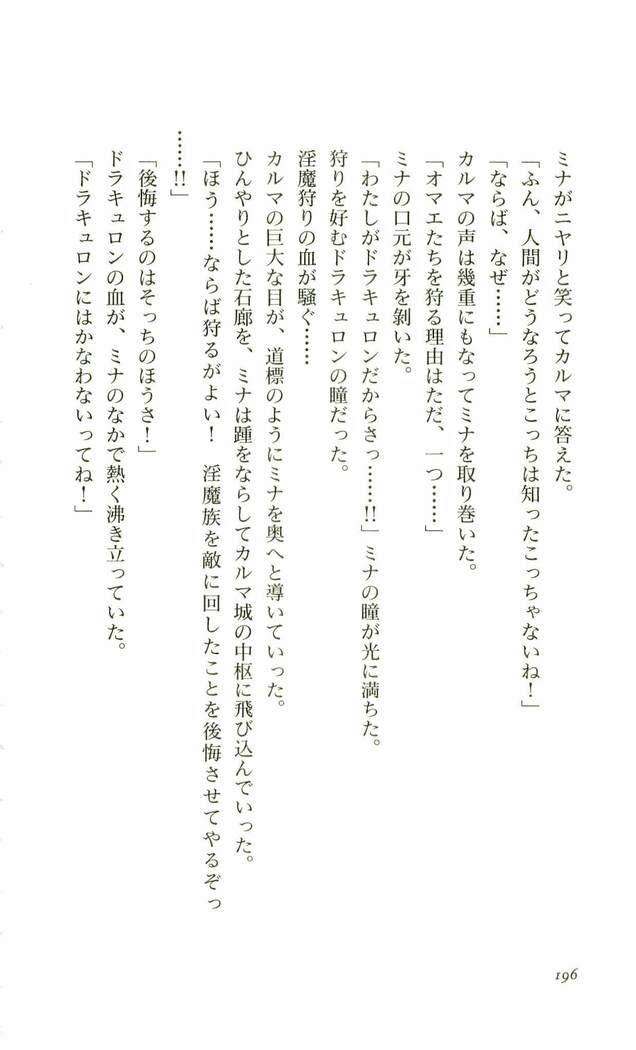 ミナがニヤリと笑ってカルマに答えた。
「ふん、人間がどうなろうとこっちは知ったこっちゃないね！」
「ならば、なぜ……」
カルマの声は幾重にもなってミナを取り巻いた。
「オマエたちを狩る理由はただ、一つ……」
ミナの口元が牙を剝いた。
「わたしがドラキュロンだからさっ……!!」ミナの瞳が光に満ちた。
狩りを好むドラキュロンの瞳だった。
淫魔狩りの血が騒ぐ……
カルマの巨大な目が、道標のようにミナを奥へと導いていった。
ひんやりとした石廊を、ミナは踵をならしてカルマ城の中枢に飛び込んでいった。
「ほう……ならば狩るがよい！　淫魔族を敵に回したことを後悔させてやるぞっ
……!!」
「後悔するのはそっちのほうさ！」
ドラキュロンの血が、ミナのなかで熱く沸き立っていた。
「ドラキュロンにはかなわないってね！」
196